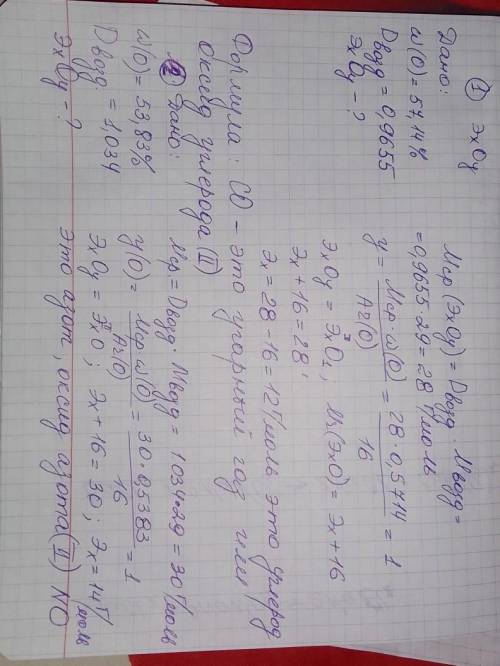 ① ЭxOy
Дано:
ω(O) = 57,14%
Dвозд = 0,9655
ЭxOy - ?
Mср (ЭxOy) = Dвозд · Mвозд =
= 0,9655 · 29 = 28 г/моль
y = Mср · ω(O) / Ar(O) = 28 · 0,5714 / 16 = 1
ЭxOy = ЭxO1; Mr(ЭxO) = Эx + 16
Эx + 16 = 28;
Эx = 28 - 16 = 12 г/моль это углерод
Формула: CO - это угарный газ или
оксид углерода (II)
② Дано:
ω(O) = 53,83%
Dвозд. = 1,034
ЭxOy - ?
Mср = Dвозд · Mвозд = 1034·29 = 30 г/моль
y(O) = Mср · ω(O) / Ar(O) = 30 · 0,5383 / 16 = 1
ЭxOy = ЭxO; Эx + 16 = 30; Эx = 14 г/моль
это азот, оксид азота (II) NO